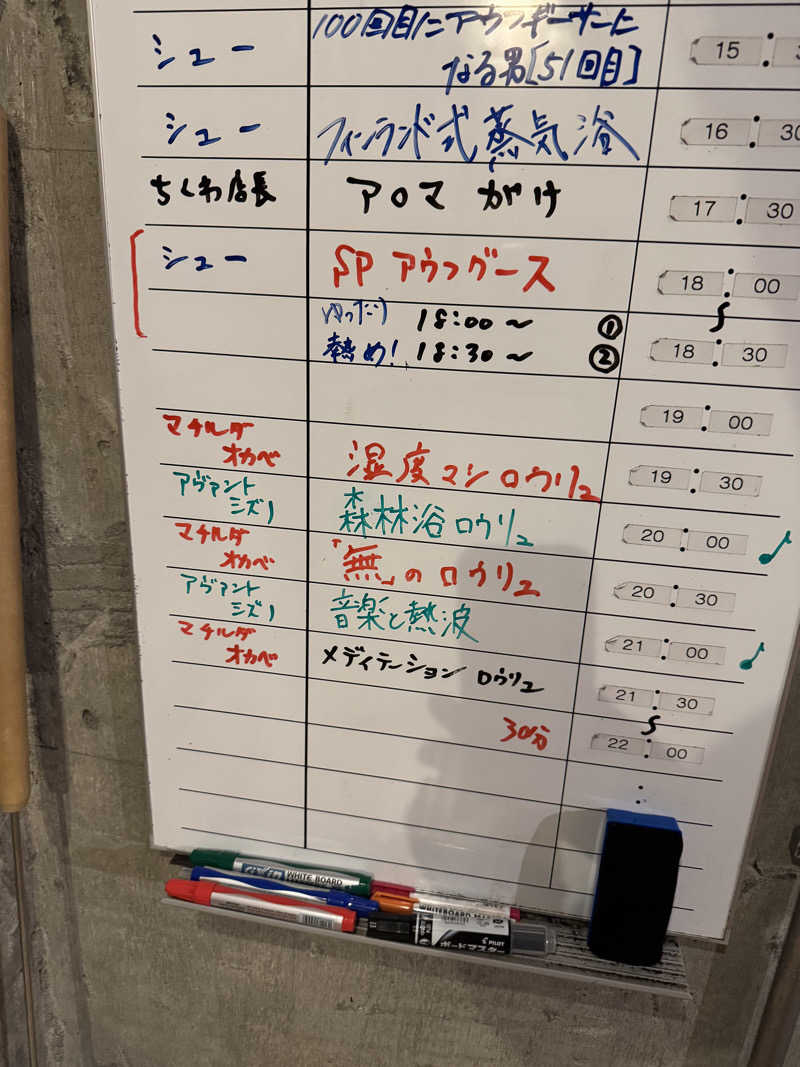 シュー 100回目にアウフギーサーに
なる男[51回目] 15 : 3
シュー フィンランド式蒸気浴 16 : 30
ちくわ店長 アロマ がけ 17 : 30
シュー SP アウフグース 18 : 00
ゆったり 18:00〜 ①
熱め! 18:30〜 ② 18 : 30
19 : 00
マチルダ
オカベ 湿度マシロウリュ 19 : 30
アヴァント
ミズノ 森林浴ロウリュ 20 : 00 ♪
マチルダ
オカベ 「無」のロウリュ 20 : 30
アヴァント
ミズノ 音楽と熱波 21 : 00 ♪
マチルダ
オカベ メディテーション ロウリュ 21 : 30
30分 22 : 00
:
WHITE BOARD
WHITEBOARD
PILOT
ボードマスター